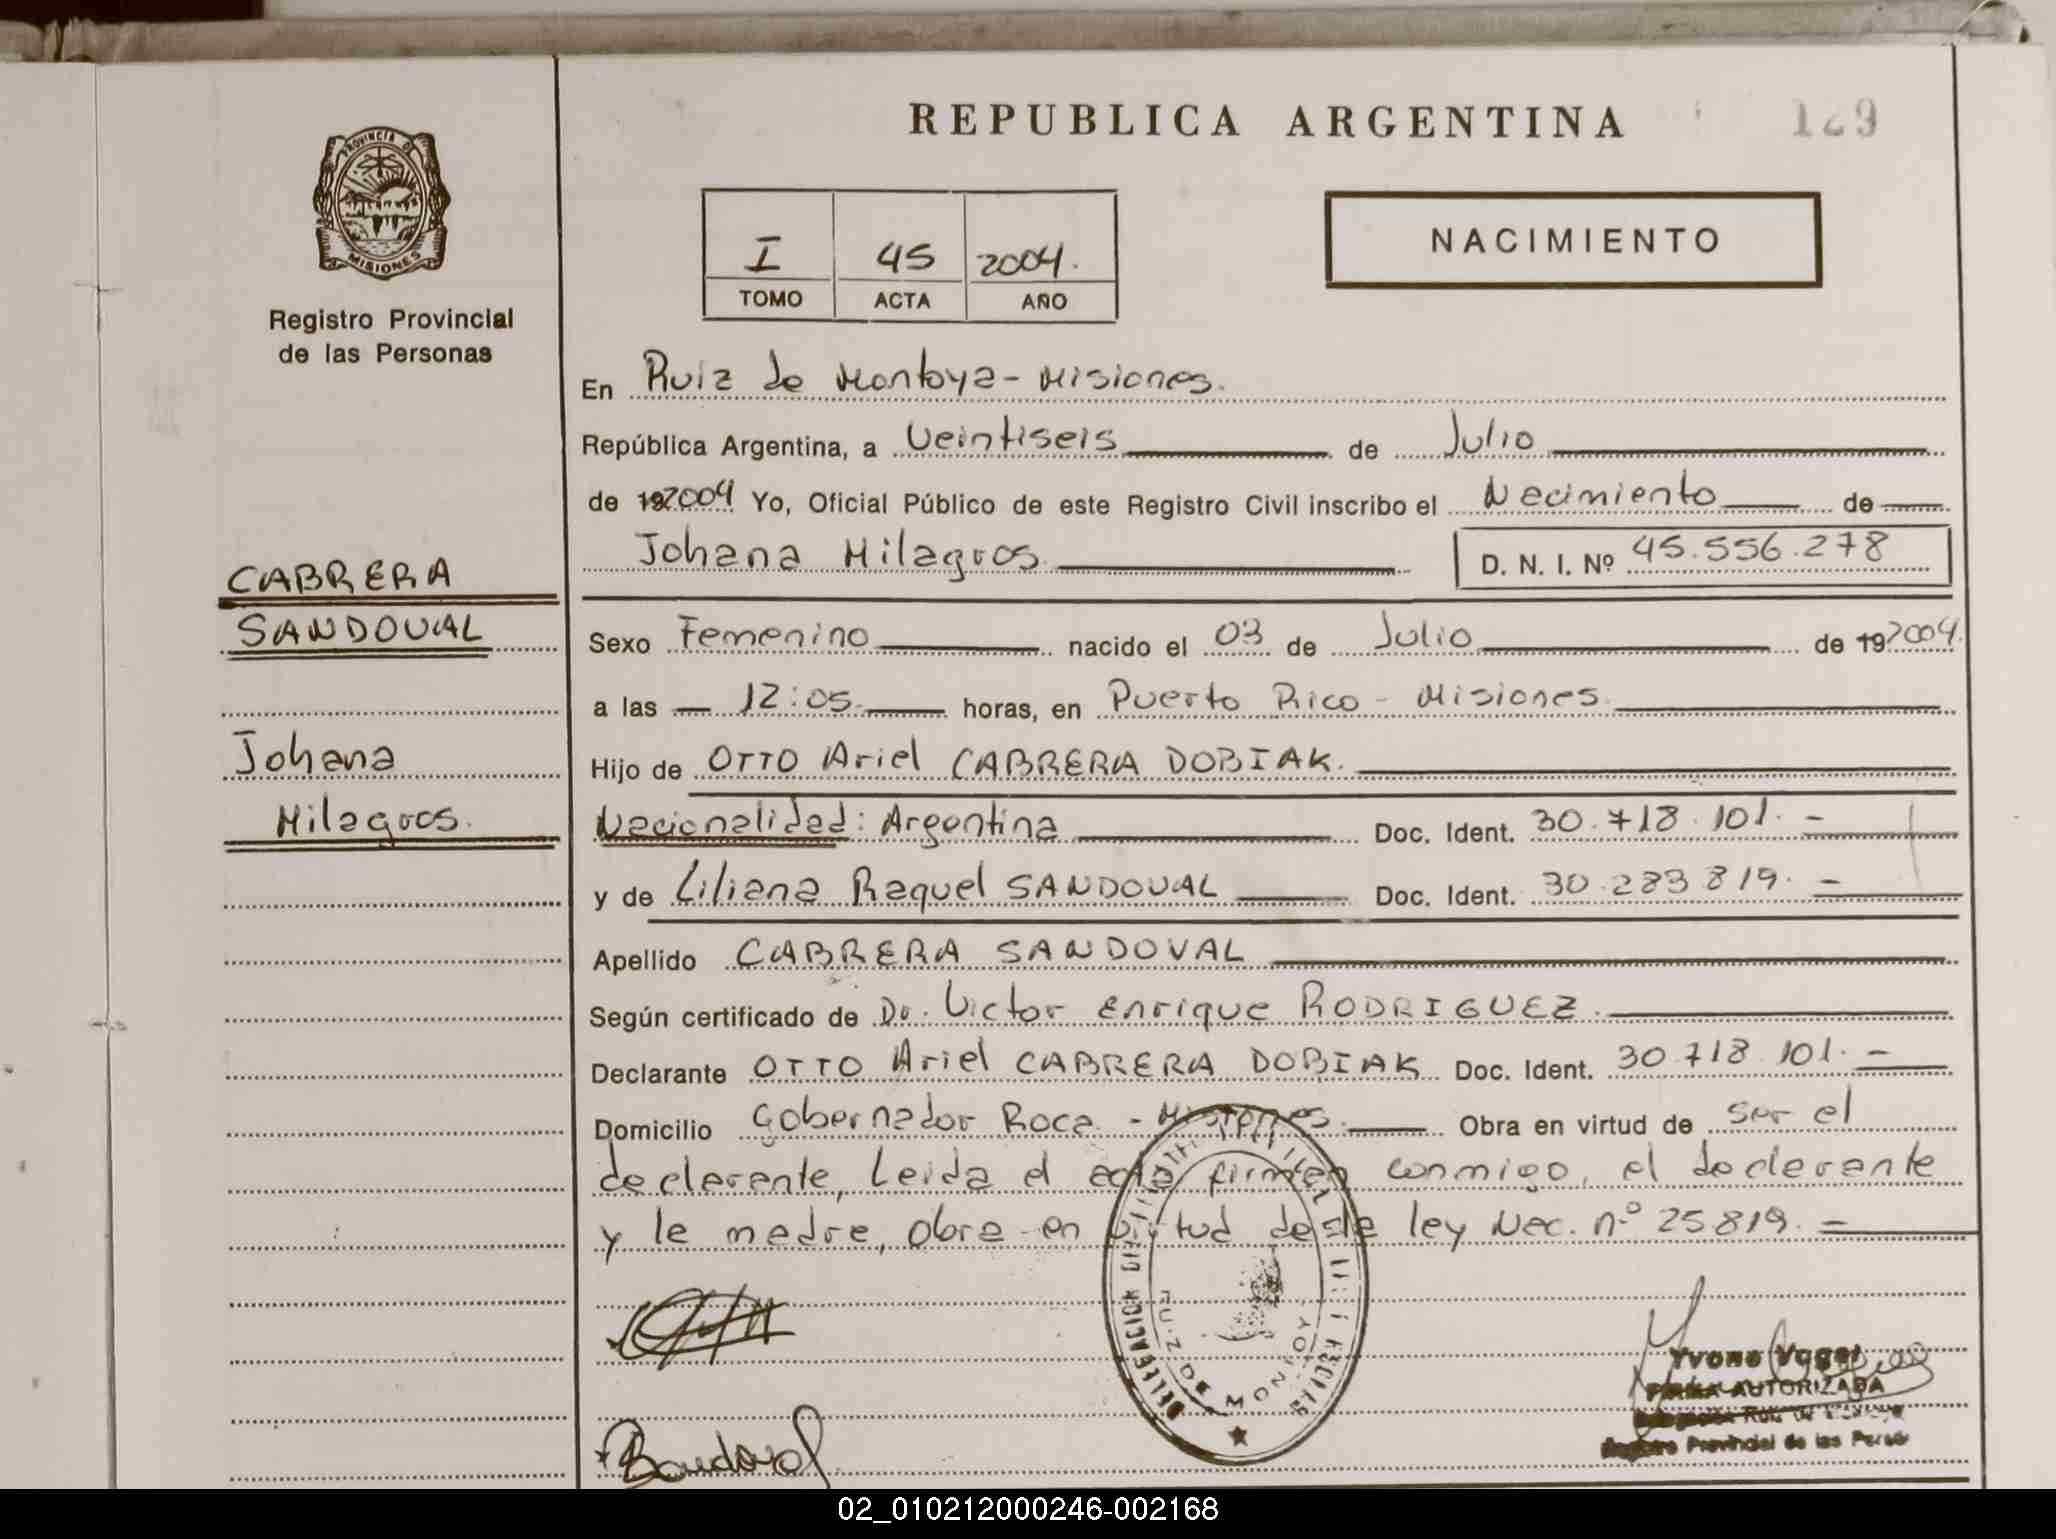 REPUBLICA ARGENTINA
129
PROVINCIA DE
MISIONES
Registro Provincial
de las Personas
I 45 2004.
TOMO ACTA AÑO
NACIMIENTO
En Ruiz de Montoya - Misiones.
República Argentina, a Veintiseis de Julio
de 192004 Yo, Oficial Público de este Registro Civil inscribo el Nacimiento de
Johana Milagros. D. N. I. Nº 45.556.278
CABRERA
SANDOVAL
Johana
Milagros.
Sexo Femenino nacido el 03 de Julio de 192004.
a las 12:05. horas, en Puerto Rico - Misiones.
Hijo de OTTO Ariel CABRERA DOBIAK.
Nacionalidad: Argentina Doc. Ident. 30.718.101.-
y de Liliana Raquel SANDOVAL Doc. Ident. 30.283819.-
Apellido CABRERA SANDOVAL
Según certificado de Dr. Victor Enrique RODRIGUEZ.
Declarante OTTO Ariel CABRERA DOBIAK Doc. Ident. 30.718.101.-
Domicilio Gobernador Roca - Misiones. Obra en virtud de ser el
declarante, Leida el acta firman conmigo, el declarante
y la madre, obra en virtud de la ley Nac. nº 25819.-
DELEGACION
RUIZ DE MONTOYA
Sandoval
Yvone
FIRMA AUTORIZADA
Delegación Ruiz de Montoya
Registro Provincial de las Person
02_010212000246-002168